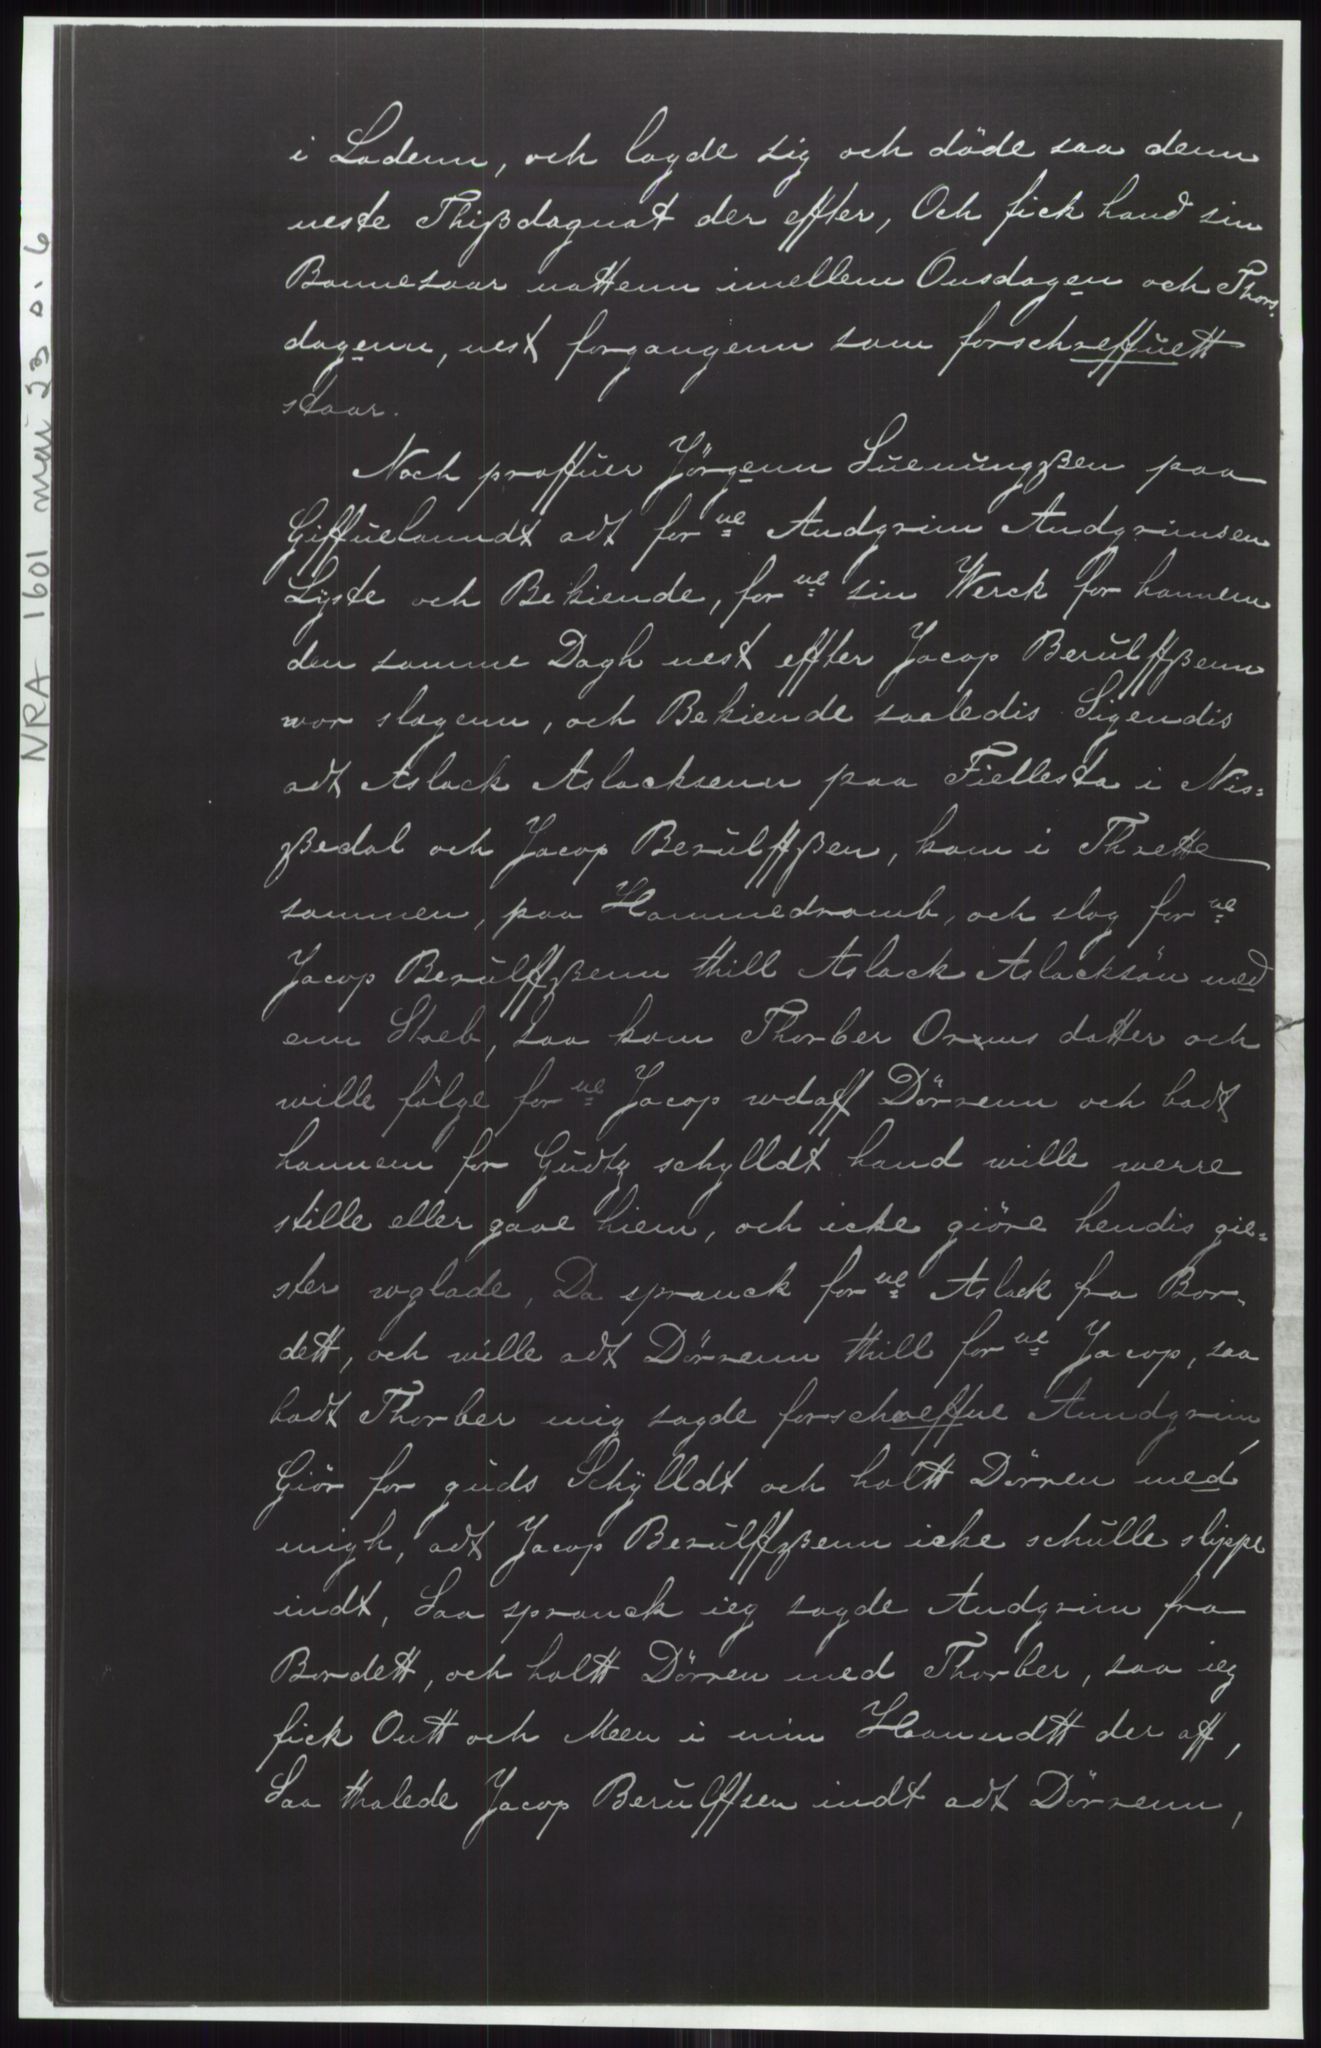 i Ladenn, och lagde sig och döde saa denn
neste Thißdagnat der effter, Och fick hand sin
Bannesaar nattenn imellem Onsdagen och Thors.
dagenn, nest forgangenn som forschreffuett
staar.
Noch proffuer Jörgenn Suenungßen paa
Giffuelanndt adt for ue Andgrim Andgrimsen
Lyste och Bekiende, for ue sin Werck for hannem
den samme Dagh nest effter Jacop Berulffßenn
wor slagenn, och Bekiende saaledis Sigendis
adt Aslack Aslacksenn paa Fiellesta i Nis=
ßedal och Jacop Berulffßen, kom i Thrette
sammen, paa Hommedramb, och slog for ue
Jacop Berulffßenn thill Aslack Aslacksön med
enn Staeb, saa kom Thorber Orms datter och
wille fölge for ue Jacop wdaff Dörrenn och badt
hannem for Gudtz schylldt hand wille werre
stille eller gaae hiem, och icke giöre hendis gie=
ster wglade, Da spranck for ue Aslack fra Bor-
dett, och wille adt Dörrenn thill for ue Jacop, saa
badt Thorber mig sagde forschreffue Anndgrim,
Giör for guds Schylldt och haltt Dörren med
migh, adt Jacop Berulffßenn icke schulle slippe
indt, Saa spranck ieg sagde Andgrim fra
Bordett, och haltt Dörren med Thorber, saa ieg
fick Ontt och Meen i min Haanndtt der aff,
Saa thalede Jacop Berulffsen indt adt Dörrenn,
NRA 1601 mai 23 o. 6